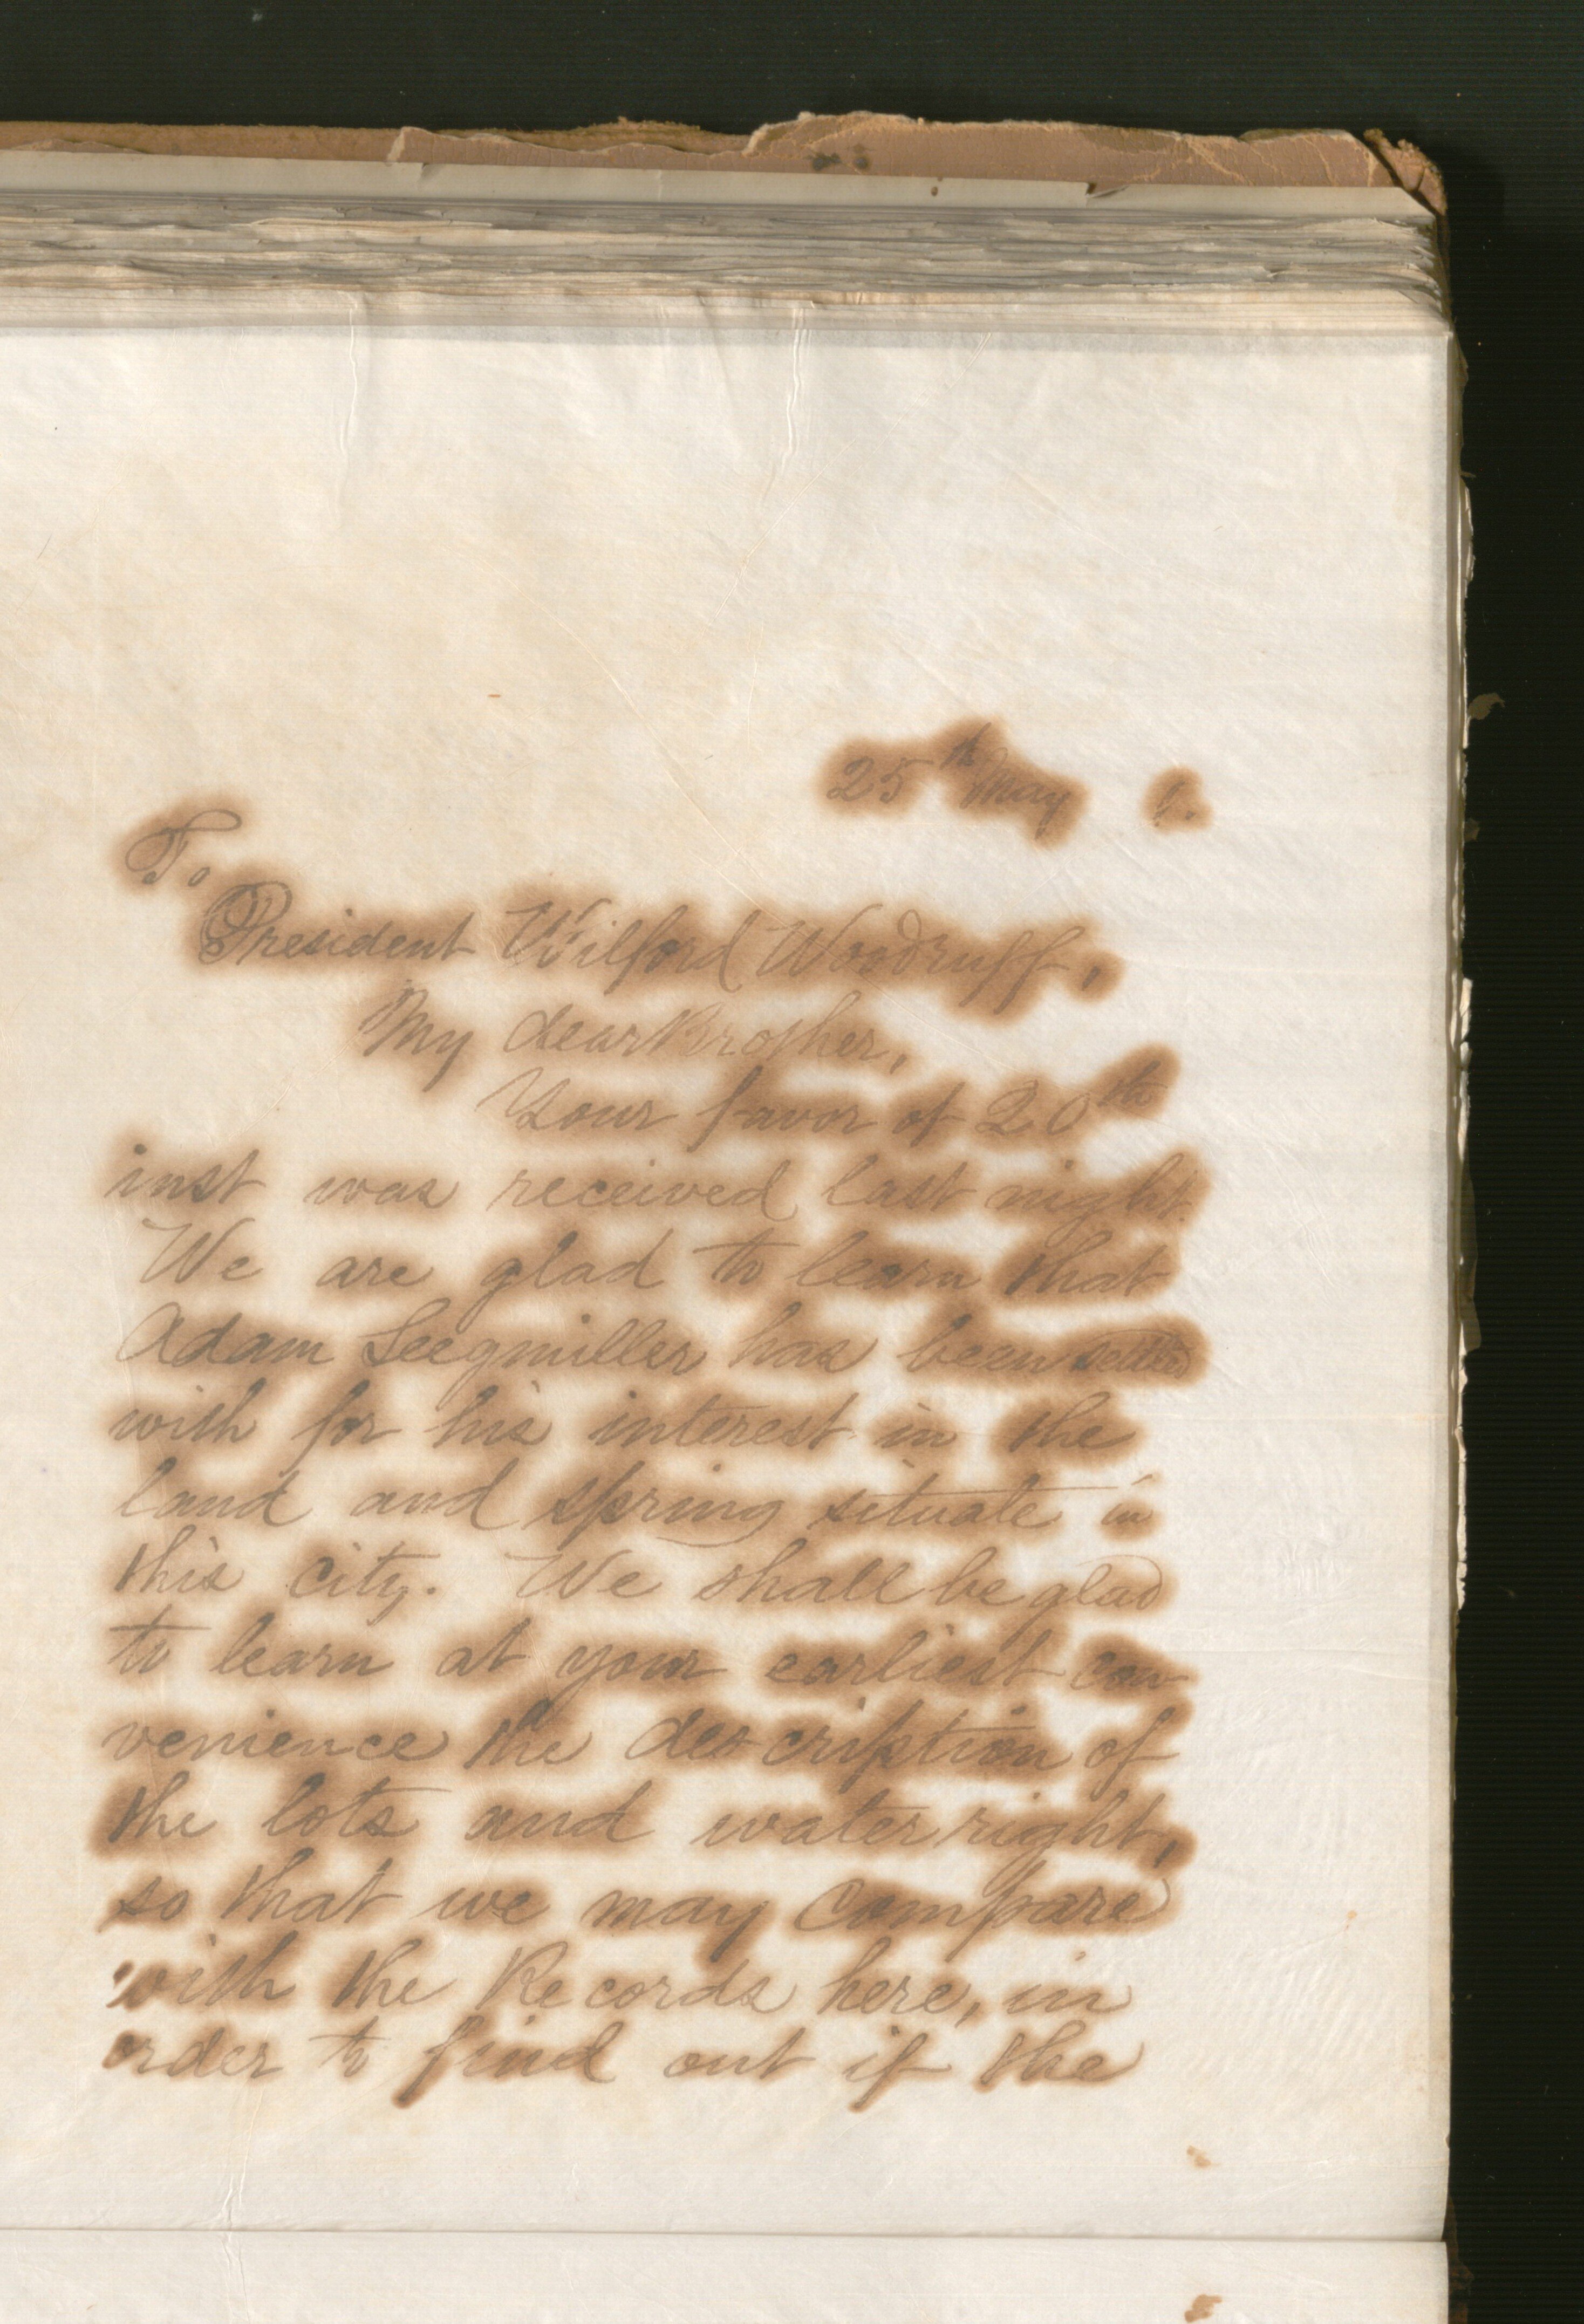 25th May
To
President Wilford Woodruff,
My dear Brother,
Your favor of 20th
inst was received last night.
We are glad to learn that
Adam Seegmiller has been settled
with for his interest in the
land and spring situate in
this city. We shall be glad
to learn at your earliest con
venience the description of
the lots and water right,
so that we may compare
with the Records here, in
order to find out if the